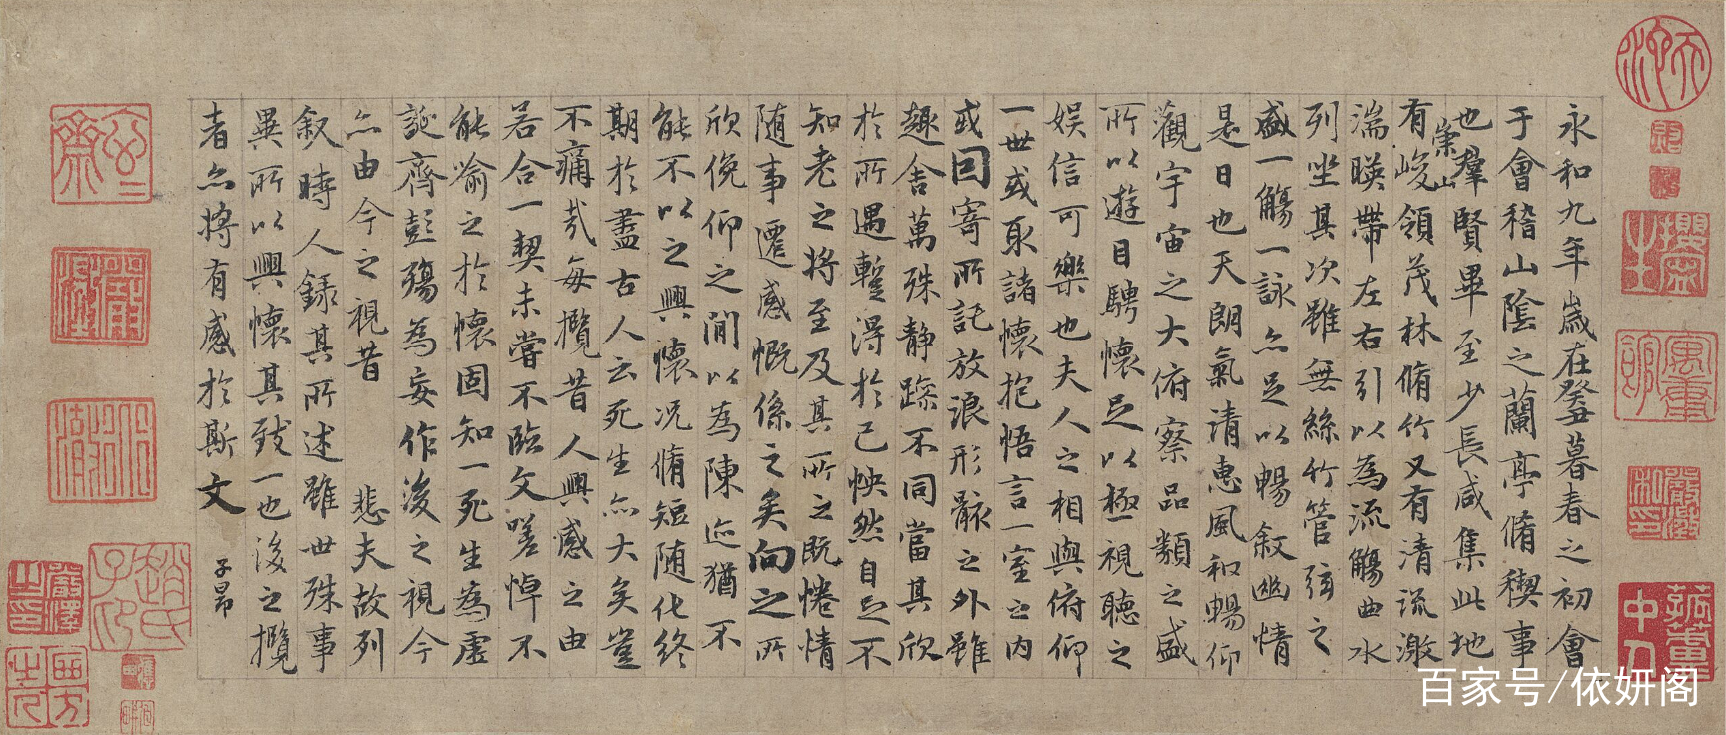 永和九年歲在癸丑暮春之初會
于會稽山陰之蘭亭脩稧事
也羣賢畢至少長咸集此地
有崇山峻領茂林脩竹又有清流激
湍暎帶左右引以為流觴曲水
列坐其次雖無絲竹管弦之
盛一觴一詠亦足以暢敘幽情
是日也天朗氣清惠風和暢仰
觀宇宙之大俯察品類之盛
所以遊目騁懷足以極視聽之
娛信可樂也夫人之相與俯仰
一世或取諸懷抱悟言一室之內
或因寄所託放浪形骸之外雖
趣舍萬殊靜躁不同當其欣
於所遇蹔得於己怏然自足不
知老之將至及其所之既惓情
隨事遷感慨係之矣向之所
欣俛仰之閒以為陳迹猶不
能不以之興懷況脩短隨化終
期於盡古人云死生亦大矣豈
不痛哉每攬昔人興感之由
若合一契未嘗不臨文嗟悼不
能喻之於懷固知一死生為虛
誕齊彭殤為妄作後之視今
亦由今之視昔 悲夫故列
敘時人錄其所述雖世殊事
異所以興懷其致一也後之攬
者亦將有感於斯文
子昂
趙氏子印
百家号/依妍阁